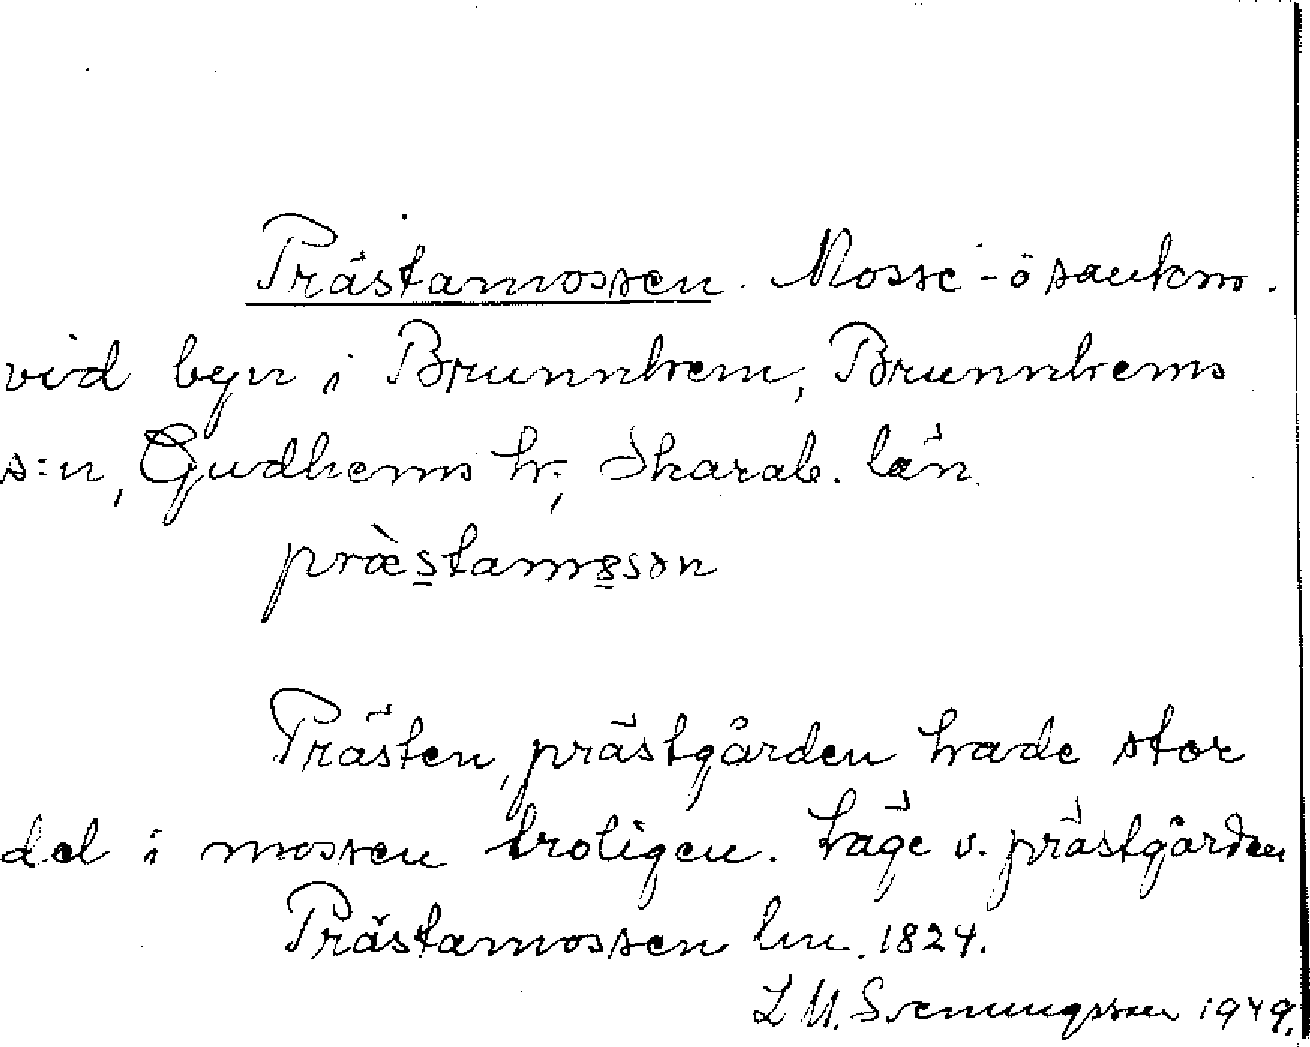 Prästamossen. Mosse - ö sankm.
vid byn i Brunnhem, Brunnhems
s:n, Gudhems hr; Skarab. län.
præ̀stamssən
Prästen, prästgården hade stor
del i mossen troligen. Läge v. prästgården
Prästamossen lm. 1824.
L M. Svenungsson 1949.